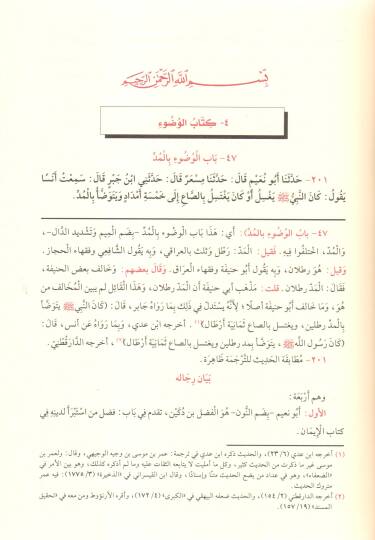 بِسْمِ اللَّهِ الرَّحْمَنِ الرَّحِيمِ
٤- كِتَابُ الوُضُوءِ
٤٧- بَابُ الوُضُوءِ بِالْمُدِّ
٢٠١- حَدَّثَنَا أَبُو نُعَيْمٍ قَالَ: حَدَّثَنَا مِسْعَرٌ قَالَ: حَدَّثَنِي ابْنُ جَبْرٍ قَالَ: سَمِعْتُ أَنَسًا
يَقُولُ: كَانَ النَّبِيُّ ﷺ يَغْسِلُ أَوْ كَانَ يَغْتَسِلُ بِالصَّاعِ إِلَى خَمْسَةِ أَمْدَادٍ وَيَتَوَضَّأُ بِالْمُدِّ.
٤٧- بَابُ الوُضُوءِ بِالمُدِّ: أي: هَذَا بَاب الوضوء بِالْمُدِّ -بِضَم الْمِيم وَتَشْديد الدَّال-،
وَالْمُدّ، اخْتلفُوا فِيهِ. فَقيل: الْمَدّ: رَطْل وَثلث بالعراقي، وَبِه يَقُول الشَّافِعِي وفقهاء الْحجاز.
وَقيل: هُوَ رطلان، وَبِه يَقُول أَبُو حنيفَة وفقهاء الْعرَاق. وَقَالَ بَعضهم: وَخَالف بعض الْحَنَفِيَّة،
فَقَالَ: الْمَدّ رطلان. قلت: مَذْهَب أبي حنيفَة أَن الْمَدّ رطلان، وَهَذَا الْقَائِل لم يبين الْمُخَالف من
هُوَ، وَمَا خَالف أَبُو حنيفَة أصلًا؛ لِأَنَّهُ يسْتَدلّ فِي ذَلِك بِمَا رَوَاهُ جَابر، قَالَ: (كَانَ النَّبِي ﷺ يتَوَضَّأ
بِالْمدِّ رطلين، ويغتسل بالصاع ثَمَانِيَة أَرْطَال)(١). أخرجه ابن عدي، وَبِمَا رَوَاهُ عَن أنس، قَالَ:
(كَانَ رَسُول اللَّه ﷺ، يتَوَضَّأ بِمد رطلين ويغتسل بالصاع ثَمَانِيَة أَرْطَال)(٢)، أخرجه الدَّارَقُطْنِيّ.
٢٠١- مُطَابقَة الحَدِيث للتَّرْجَمَة ظَاهِرَة.
بَيَان رِجَاله
وهم أَرْبَعَة:
الأول: أَبُو نعيم -بِضَم النُّون- هُوَ الْفضل بن دُكَيْن، تقدم فِي بَاب: فضل من اسْتَبْرَأَ لدينِهِ فِي
كتاب الْإِيمَان.
(١) أخرجه ابن عدي (٢٣/٦)، والحديث ذكره ابن عدي في ترجمة: عمر بن موسى بن وجيه الوجيهي، وقال: ولعمر بن
موسى غير ما ذكرت من الحديث كثير، وكل ما أمليت لا يتابعه الثقات عليه وما لم أذكره كذلك، وهو بين الأمر في
«الضعفاء»، وهو في عداد من يضع الحديث متنًا وإسنادًا، وقال ابن القيسراني في «الذخيرة» (١٧٧٥/٣): فيه عمر
متروك الحديث.
(٢) أخرجه الدارقطني (١٥٤/٢)، والحديث ضعفه البيهقي في «الكبرى» (١٧٢/٤)، وأقره الأرنؤوط ومن معه في «تحقيق
المسند» (١٥٧/١٩).